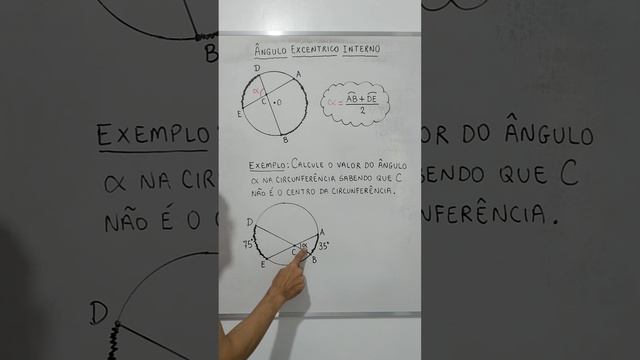 ÂNGULO EXCENTRICO INTERNO
D
A
α
C
O
E
B
α = AB + DE
2
EXEMPLO: CALCULE O VALOR DO ÂNGULO
α NA CIRCUNFERÊNCIA SABENDO QUE C
NÃO É O CENTRO DA CIRCUNFERÊNCIA.
D
A
75°
C
α
35°
E
B
B
EXEMPLO:
α NA CIR
NÃO É O
D
OR DO ÂNGULO
SENDO QUE C
NFERÊNCIA.